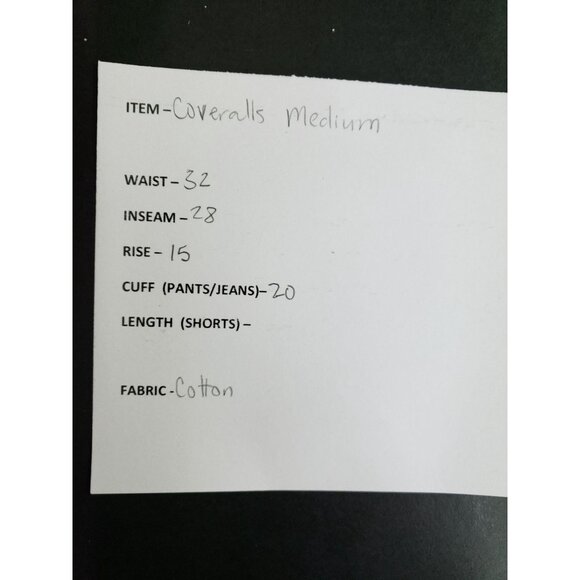 ITEM-Coveralls Medium
WAIST- 32
INSEAM - 28
RISE - 15
CUFF (PANTS/JEANS)-20
LENGTH (SHORTS) -
FABRIC -Cotton